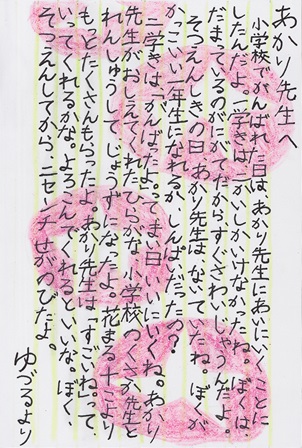 あかり先生へ
小学校でがんばれた日は、あかり先生にあいにいくことに
したんだよ。一学きは二かいしかいけなかったね。ぼくは、
だまっているのがにがてだからすぐさわいじゃうんだよ。
そつえんしきの日、あかり先生はないていたね。ぼくが
かっこいい一年生になれるか、しんぱいだったの？
二学きは「がんばたよ。」ってまい日いいにいくね。あかり
先生がおしえてくれたひらがな、小学校のつくさか先生と
れんしゅうして、じょうずになったよ。花まる十こより
もっとたくさんもらったよ。あかり先生は「すごいね。」って、
いってくれるかな。よろこんでくれるといいな。ぼく、
そつえんしてから、二センチせがのびたよ。
ゆづるより